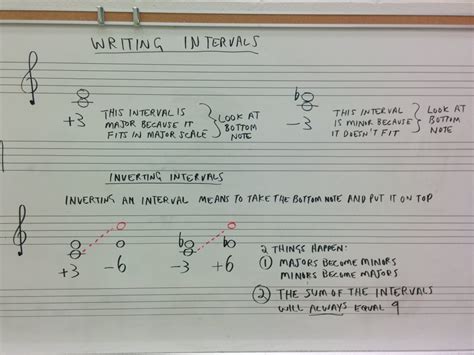 WRITING INTERVALS
+3
THIS INTERVAL IS
MAJOR BECAUSE IT
FITS IN MAJOR SCALE
LOOK AT
BOTTOM
NOTE
♭
-3
THIS INTERVAL
IS MINOR BECAUSE
IT DOESN'T FIT
LOOK AT
BOTTOM
NOTE
INVERTING INTERVALS
INVERTING AN INTERVAL MEANS TO TAKE THE BOTTOM NOTE AND PUT IT ON TOP
♭ ♭
+3 -6 -3 +6
2 THINGS HAPPEN:
① MAJORS BECOME MINORS
MINORS BECOME MAJORS
② THE SUM OF THE INTERVALS
WILL ALWAYS EQUAL 9